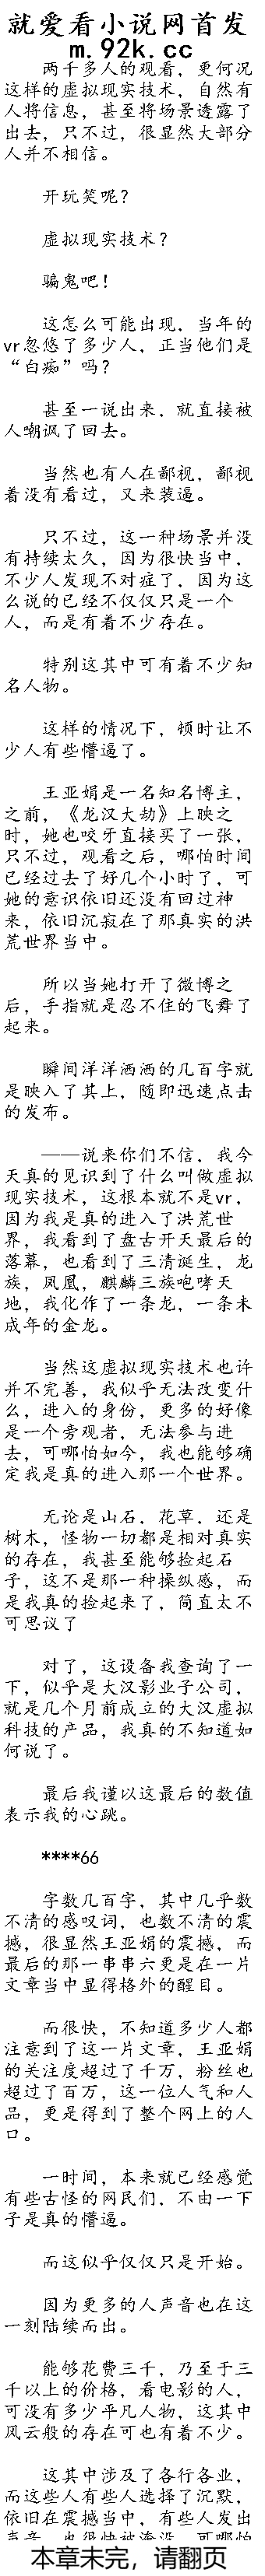 就爱看小说网首发
m.92k.cc
两千多人的观看，更何况
这样的虚拟现实技术，自然有
人将信息，甚至将场景透露了
出去，只不过，很显然大部分
人并不相信。
开玩笑呢？
虚拟现实技术？
骗鬼吧！
这怎么可能出现，当年的
vr忽悠了多少人，正当他们是
“白痴”吗？
甚至一说出来，就直接被
人嘲讽了回去。
当然也有人在鄙视，鄙视
着没有看过，又来装逼。
只不过，这一种场景并没
有持续太久，因为很快当中，
不少人发现不对症了，因为这
么说的已经不仅仅只是一个
人，而是有着不少存在。
特别这其中可有着不少知
名人物。
这样的情况下，顿时让不
少人有些懵逼了。
王亚娟是一名知名博主，
之前，《龙汉大劫》上映之
时，她也咬牙直接买了一张，
只不过，观看之后，哪怕时间
已经过去了好几个小时了，可
她的意识依旧还没有回过神
来，依旧沉寂在了那真实的洪
荒世界当中。
所以当她打开了微博之
后，手指就是忍不住的飞舞了
起来。
瞬间洋洋洒洒的几百字就
是映入了其上，随即迅速点击
的发布。
——说来你们不信，我今
天真的见识到了什么叫做虚拟
现实技术，这根本就不是vr，
因为我是真的进入了洪荒世
界，我看到了盘古开天最后的
落幕，也看到了三清诞生，龙
族，凤凰，麒麟三族咆哮天
地，我化作了一条龙，一条未
成年的金龙。
当然这虚拟现实技术也许
并不完善，我似乎无法改变什
么，进入的身份，更多的好像
是一个旁观者，无法参与进
去，可哪怕如今，我也能够确
定我是真的进入那一个世界。
无论是山石，花草，还是
树木，怪物一切都是相对真实
的存在，我甚至能够捡起石
子，这不是那一种操纵感，而
是我真的捡起来了，简直太不
可思议了
对了，这设备我查询了一
下，似乎是大汉影业子公司，
就是几个月前成立的大汉虚拟
科技的产品，我真的不知道如
何说了。
最后我谨以这最后的数值
表示我的心跳。
****66
字数几百字，其中几乎数
不清的感叹词，也数不清的震
撼，很显然王亚娟的震撼，而
最后的那一串串六更是在一片
文章当中显得格外的醒目。
而很快，不知道多少人都
注意到了这一片文章，王亚娟
的关注度超过了千万，粉丝也
超过了百万，这一位人气和人
品，更是得到了整个网上的人
口。
一时间，本来就已经感觉
有些古怪的网民们，不由一下
子是真的懵逼。
而这似乎仅仅只是开始。
因为更多的人声音也在这
一刻陆续而出。
能够花费三千，乃至于三
千以上的价格，看电影的人，
可没有多少平凡人物，这其中
风云般的存在可也有着不少。
这其中涉及了各行各业，
而这些人有些人选择了沉默，
依旧在震撼当中，有些人发出
声音，也很快被淹没，可哪怕
本章未完，请翻页